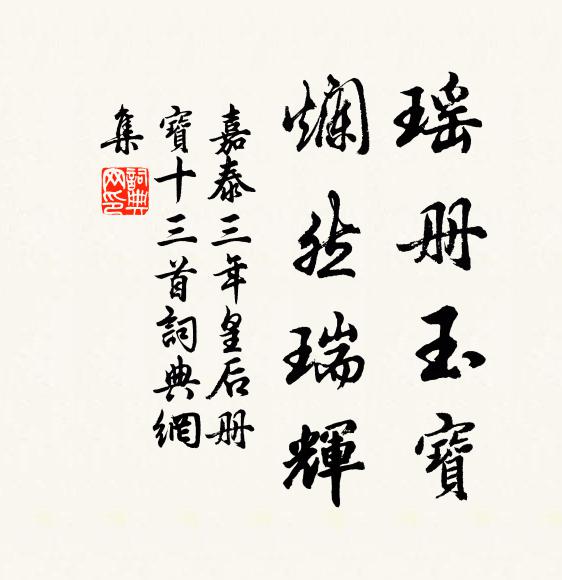 瑶册玉寶
爛然瑞輝
嘉泰三年皇后册
寶十三首詞典網
集
詞典
网印